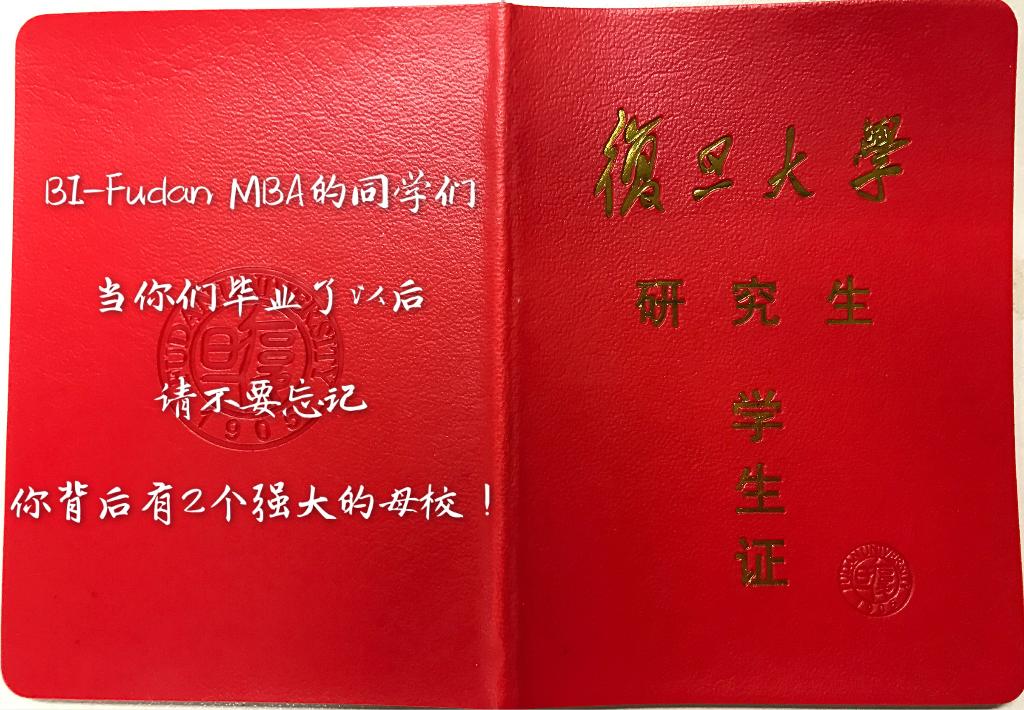 BI-Fudan MBA的同学们
当你们毕业了以后
请不要忘记
你背后有2个强大的母校！
FUDAN UNIVERSITY
復旦
1905
復旦大學
研究生
学
生
证
FUDAN UNIVERSITY
復旦
1905